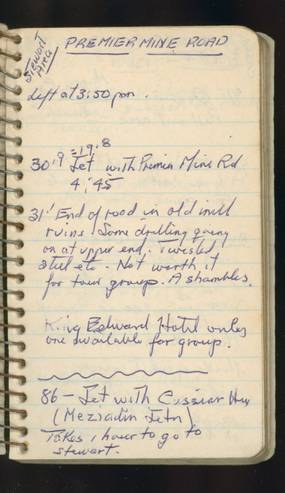 Stewart
Area
PREMIER MINE ROAD
Left at 3:50 pm.
= 19.8
30.9 Jct with Premier Mine Rd
4:45
31' End of road in old mill
ruins Some drilling going
on at upper end. Twisted
steel etc. Not worth it
for tour groups. A shambles.
King Edward Hotel only
one available for group.
86 - Jct with Cassiar Hwy
(Meziadin Jctn)
Takes 1 hour to go to
Stewart.